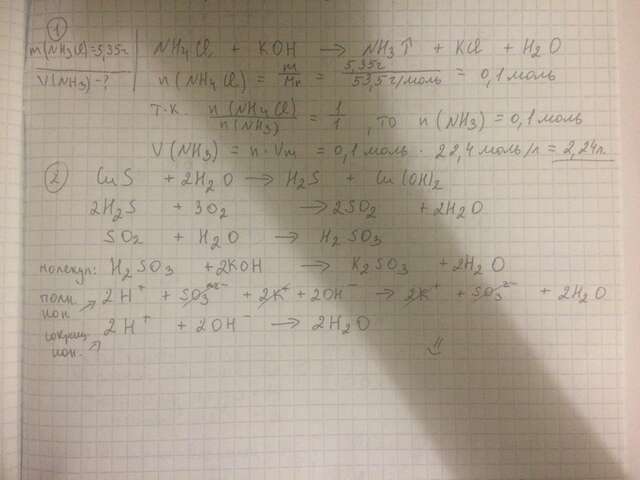 1
m(NH3Cl)=5,35г
V(NH3)-?
NH4Cl + KOH → NH3↑ + KCl + H2O
n(NH4Cl) = m/Mr = 5,35г/53,5г/моль = 0,1моль
т.к. n(NH4Cl)/n(NH3) = 1/1, то n(NH3)=0,1моль
V(NH3) = n·Vm = 0,1моль · 22,4моль/л = 2,24л.
2
CuS + 2H2O → H2S + Cu(OH)2
2H2S + 3O2 → 2SO2 + 2H2O
SO2 + H2O → H2SO3
молекул: H2SO3 + 2KOH → K2SO3 + 2H2O
полн. ион. 2H⁺ + SO3²⁻ + 2K⁺ + 2OH⁻ → 2K⁺ + SO3²⁻ + 2H2O
сокращ. ион. 2H⁺ + 2OH⁻ → 2H2O